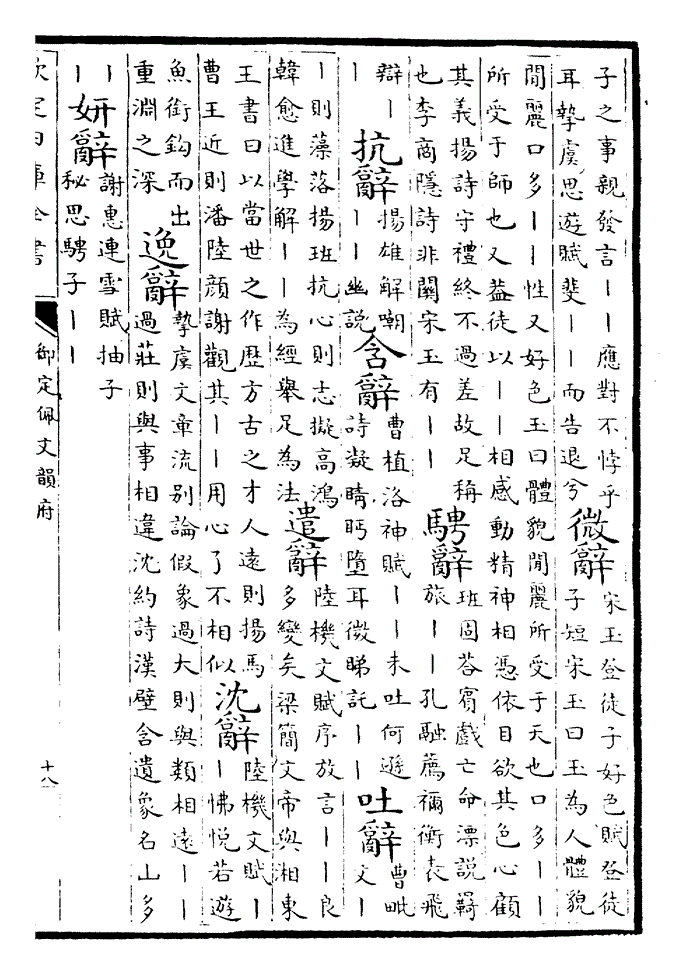 子之事親發言||應對不悖乎
耳摯虞思遊賦斐||而告退兮
微辭
宋玉登徒子好色賦登徒
子短宋玉曰玉為人體貌
閒麗口多||性又好色玉曰體貌閒麗所受于天也口多||
所受于師也又益徒以||相感動精神相憑依目欲其色心顧
其義揚詩守禮終不過差故足稱
也李商隱詩非關宋玉有||
騁辭
班固荅賓戲亡命漂說羈
旅||孔融薦禰衡表飛
辯|
|
抗辭
揚雄解嘲
||幽說
含辭
曹植洛神賦||未吐何遜
詩凝睛眄墮耳微睇託||
吐辭
曹毗
文|
|則藻落揚班抗心則志擬高鴻
韓愈進學解||為經舉足為法
遣辭
陸機文賦序放言||良
多變矣梁簡文帝與湘東
王書曰以當世之作歷方古之才人遠則揚馬
曹王近則潘陸顏謝觀其||用心了不相似
沈辭
陸機文賦|
|怫悅若遊
魚銜鈎而出
重淵之深
逸辭
摯虞文章流别論假象過大則與類相遠||
過莊則與事相違沈約詩漢壁含遺象名山多
|
|
妍辭
謝惠連雪賦抽子
秘思騁子||
欽定四庫全書
御定佩文韻府
十八